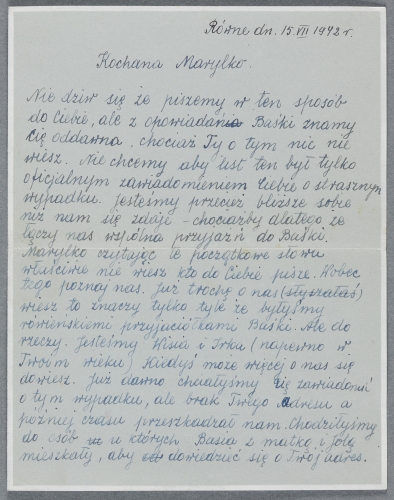 Równe dn. 15.VII 1942 r.
Kochana Marylko.
Nie dziw się że piszemy w ten sposób
do Ciebie, ale z opowiadania Baśki znamy
Cię oddawna, chociaż Ty o tym nic nie
wiesz. Nie chcemy aby list ten był tylko
oficjalnym zawiadomieniem Ciebie o strasznym
wypadku. Jesteśmy przecież bliższe sobie
niż nam się zdaje – chociażby dlatego że
łączy nas wspólna przyjaźń do Baśki.
Marylko czytając te początkowe słowa
właściwie nie wiesz kto do Ciebie pisze. Wobec
tego poznaj nas. Już trochę o nas (słyszałaś)
wiesz to znaczy tylko tyle że byłyśmy
rówieńskiemi przyjaciółkami Baśki. Ale do
rzeczy. Jesteśmy Wisia i Irka (napewno w
Twoim wieku) Kiedyś może więcej o nas się
dowiesz. Już dawno chciałyśmy Cię zawiadomić
o tym wypadku, ale brak Twego adresu a
później czasu przeszkadzał nam. Chodziłyśmy
do osób u których Basia z matką i Jolą
mieszkały, aby dowiedzieć się o Twój adres.